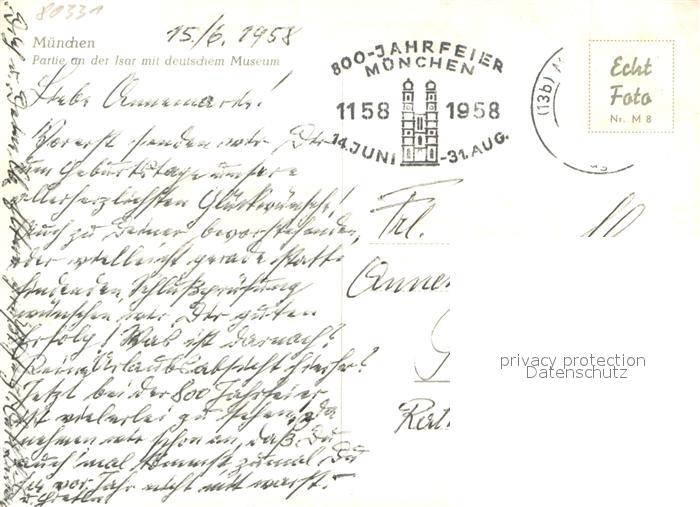 80331
15./6. 1958
München
Partie an der Isar mit deutschem Museum
800-JAHRFEIER
MÜNCHEN
1158 1958
14. JUNI -31. AUG.
(13b)
Echt
Foto
Nr. M 8
Liebe Annemarie!
Vorerst senden wir Dir
zum Geburtstage unsere
allerherzlichsten Glückwünsche!
Auch zu Deiner bevorstehenden,
oder vielleicht gerade statt-
findenden Schlußprüfung
wünschen wir Dir guten
Erfolg! Was ist darnach?
Keine Urlaubsabsicht hierher?
Jetzt bei der 800 Jahrfeier
ist vielerlei zu sehen, da
nehmen wir schon an, daß Du
auch mal kommst zumal Du
vor. Jahr nicht mit warst.
Frl.
10
Anne
Rat
privacy protection
Datenschutz